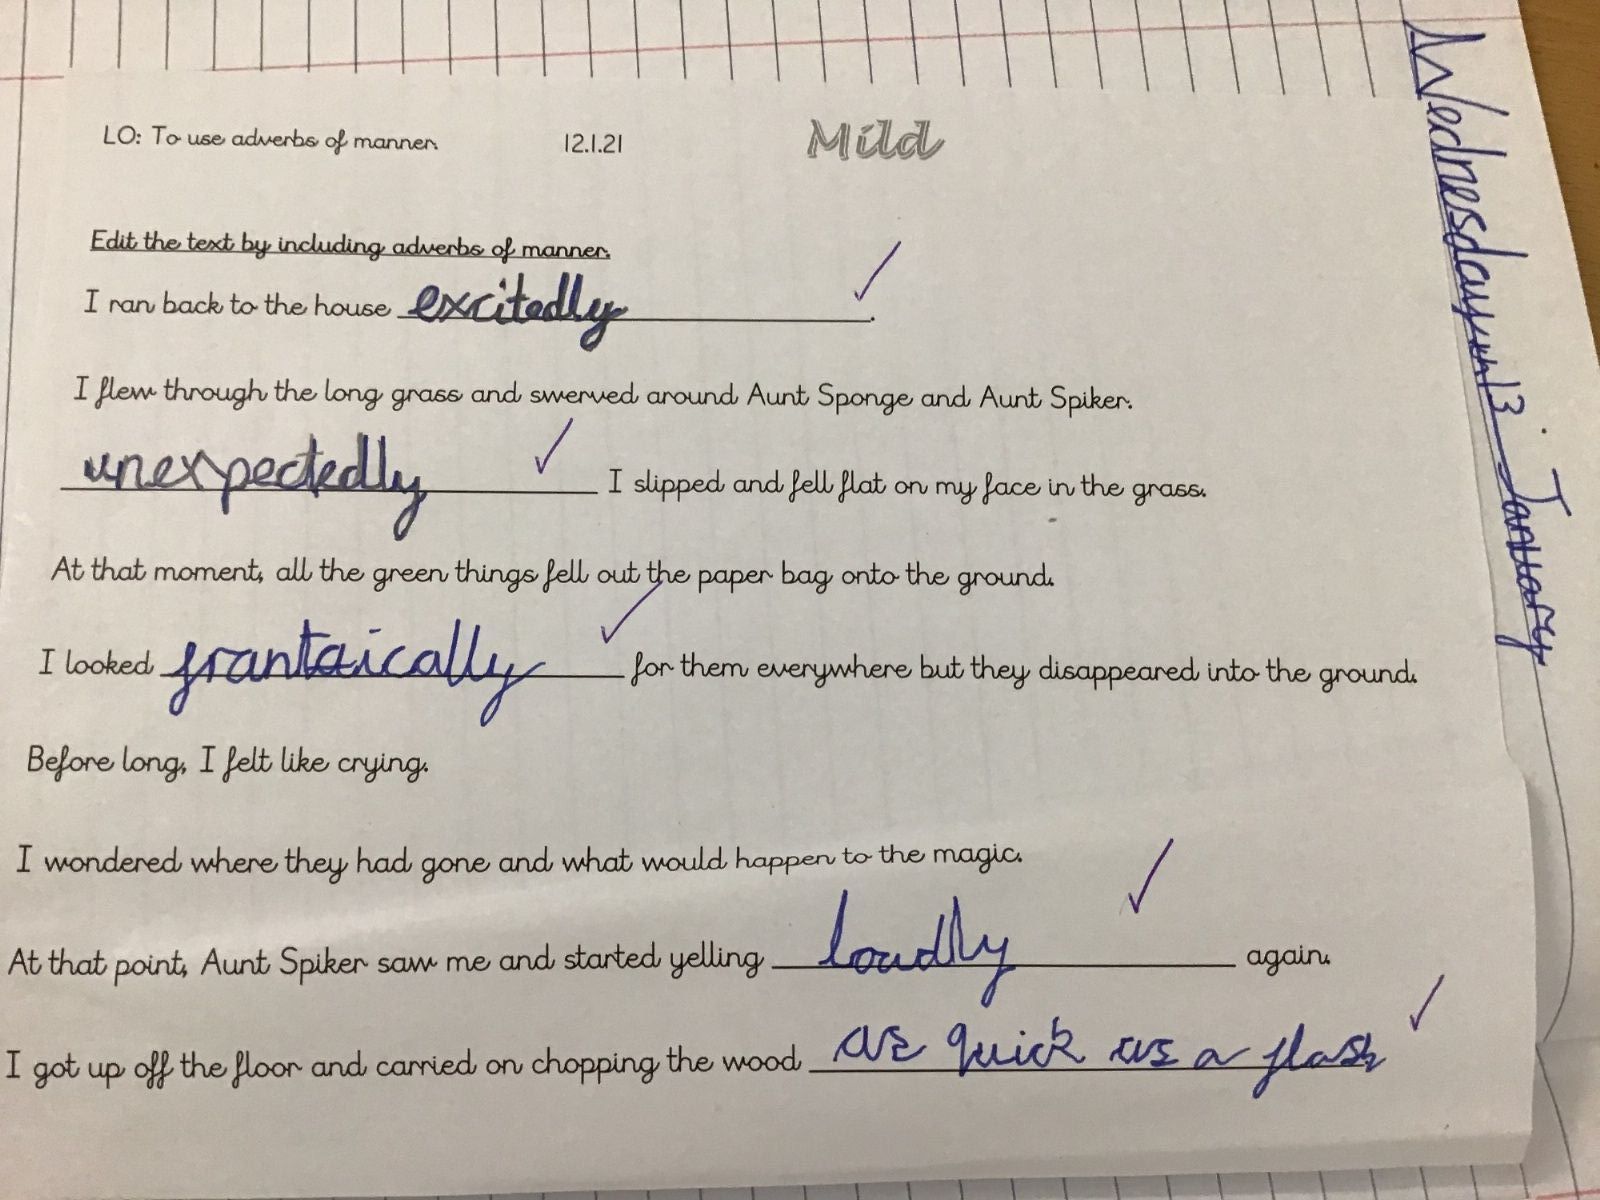 LO: To use adverbs of manner. 12.1.21 Mild
Edit the text by including adverbs of manner.
I ran back to the house excitedly.
I flew through the long grass and swerved around Aunt Sponge and Aunt Spiker.
unexpectedly I slipped and fell flat on my face in the grass.
At that moment, all the green things fell out the paper bag onto the ground.
I looked frantaically for them everywhere but they disappeared into the ground.
Before long, I felt like crying.
I wondered where they had gone and what would happen to the magic.
At that point, Aunt Spiker saw me and started yelling loudly again.
I got up off the floor and carried on chopping the wood as quick as a flash
Wednesday 13 January